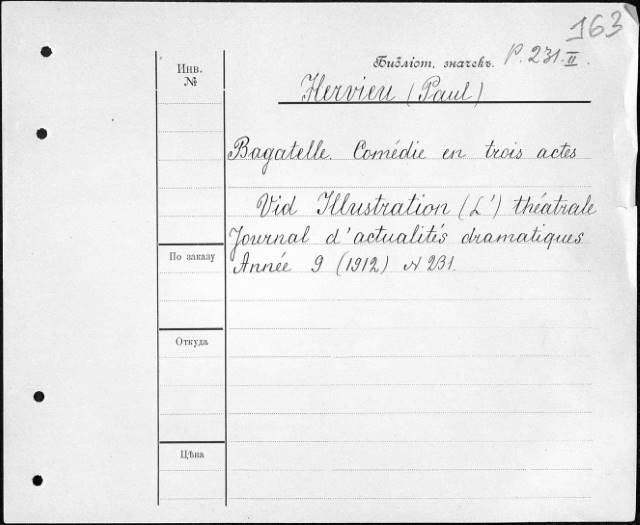 163
Библіот. значекъ. P. 231.II.
Инв.
№
Hervieu (Paul)
Bagatelle. Comédie en trois actes
Vid Illustration (L') théatrale
Journal d'actualités dramatiques
По заказу
Année 9 (1912) N 231.
Откуда
Цѣна